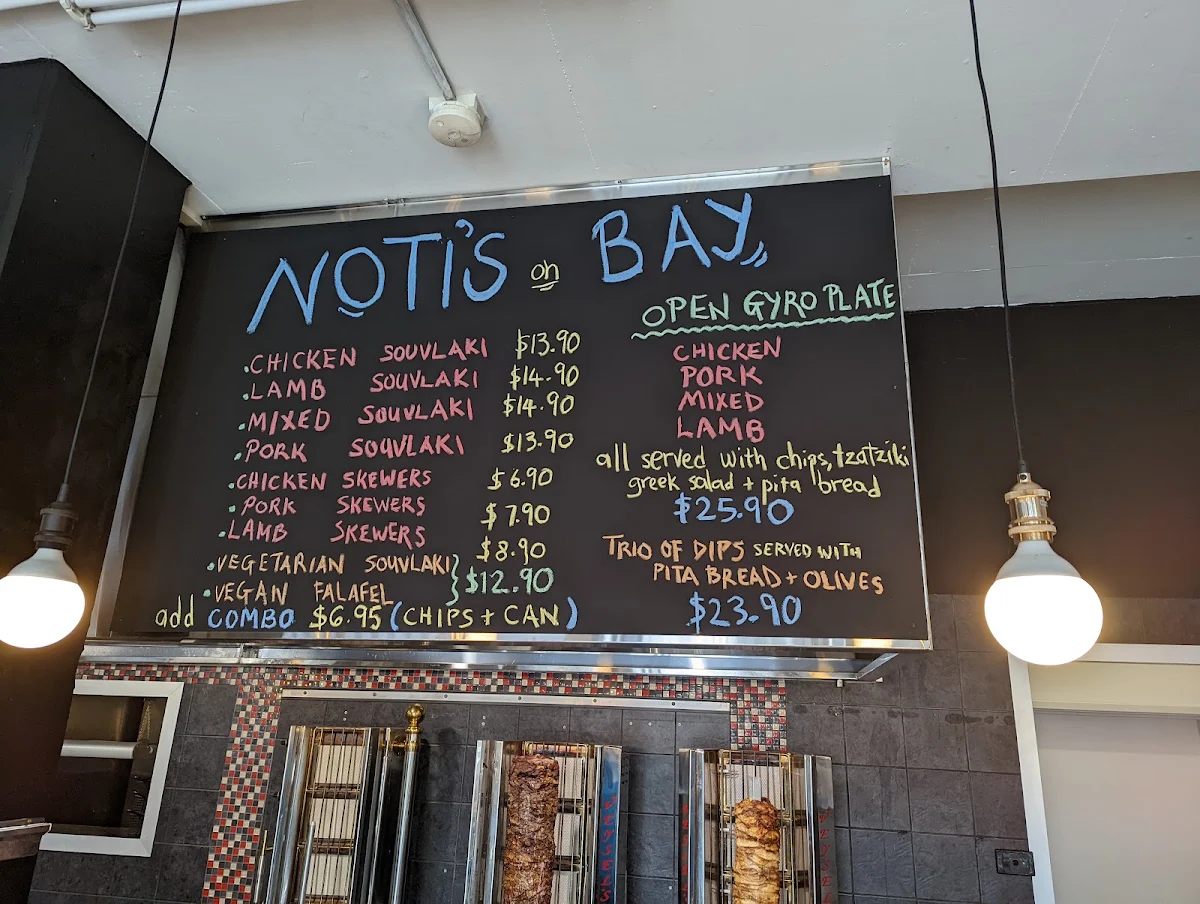 NOTI'S on BAY
.CHICKEN SOUVLAKI $13.90
.LAMB SOUVLAKI $14.90
.MIXED SOUVLAKI $14.90
.PORK SOUVLAKI $13.90
.CHICKEN SKEWERS $6.90
.PORK SKEWERS $7.90
.LAMB SKEWERS $8.90
.VEGETARIAN SOUVLAKI
.VEGAN FALAFEL } $12.90
add COMBO $6.95 (CHIPS + CAN)
OPEN GYRO PLATE
CHICKEN
PORK
MIXED
LAMB
all served with chips, tzatziki
greek salad + pita bread
$25.90
TRIO OF DIPS SERVED WITH
PITA BREAD + OLIVES
$23.90
VEYSEL'S